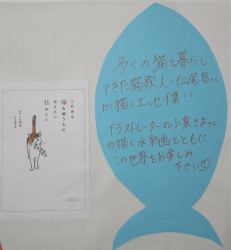 これから
猫を飼う人に
伝えたい
多くの猫と暮らし
てきた猫歌人・仁尾智さん
が描くエッセイ集!!
イラストレーターの小泉さよさん
の描く水彩画とともに
この世界をお楽しみ
下さい♡